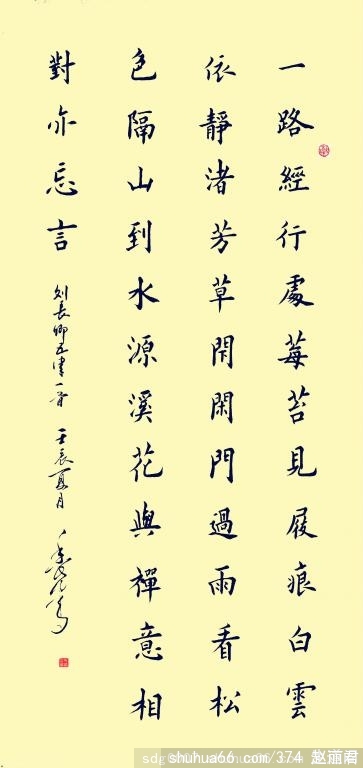 一路經行處莓苔見屐痕白雲
依靜渚芳草閉閑門過雨看松
色隔山到水源溪花與禪意相
對亦忘言
刘長卿五律一首 壬辰夏月
shuhua66 com/374 赵丽君